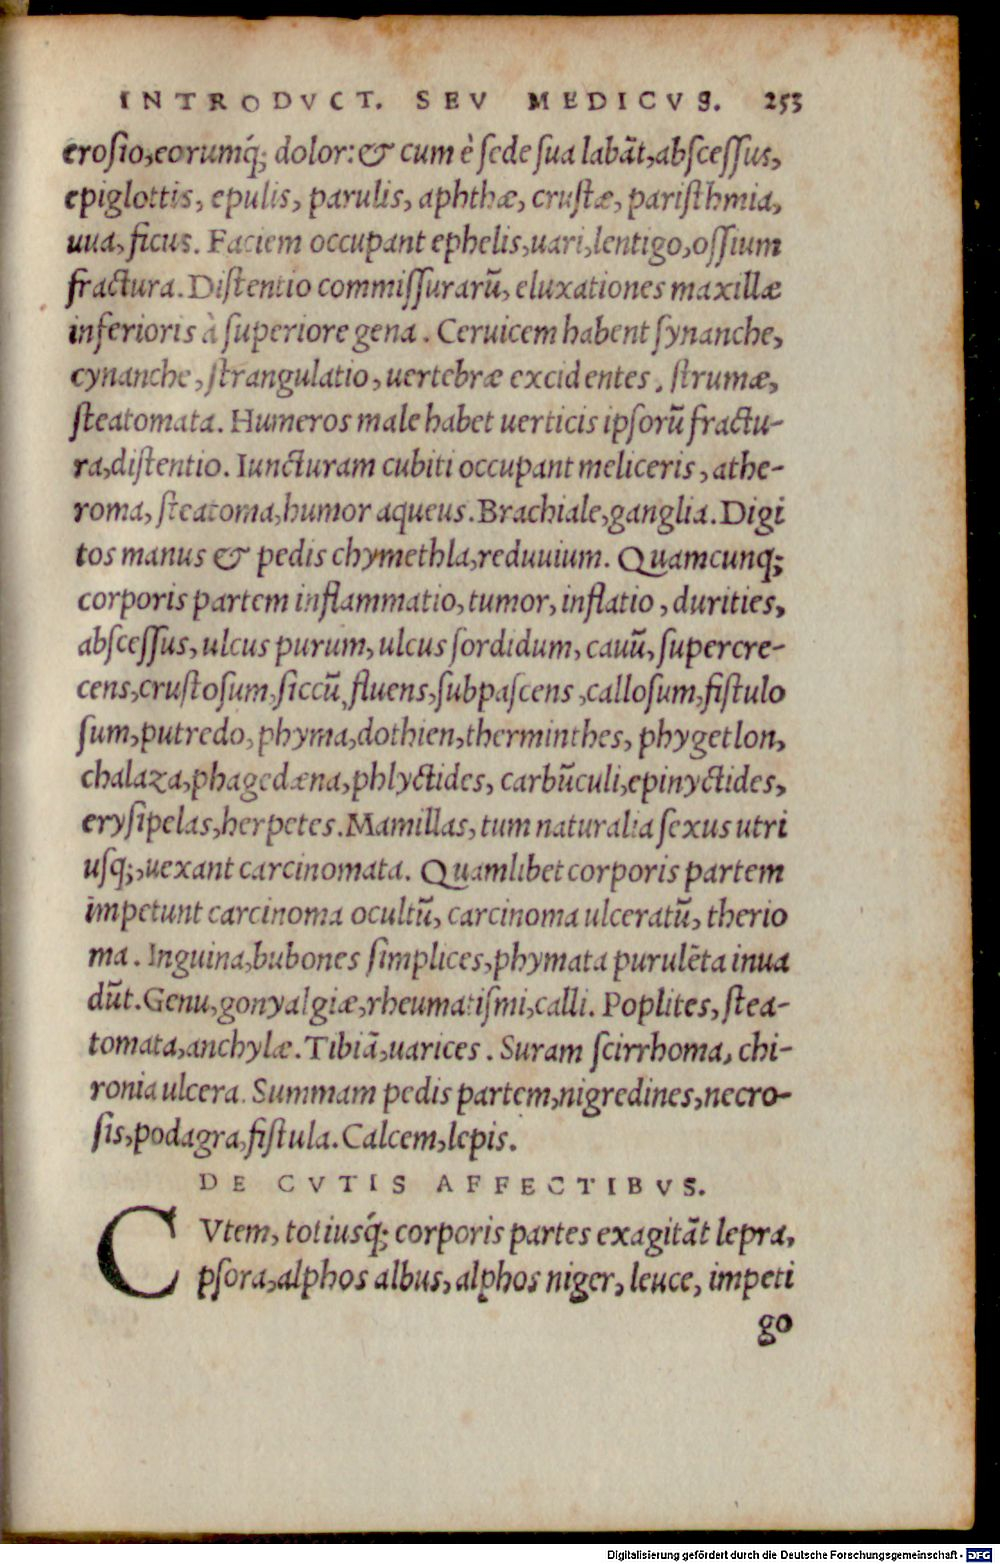 INTRODVCT. SEV MEDICVS. 253
erosio, eorumq́; dolor: & cum è sede sua labãt, abscessus,
epiglottis, epulis, parulis, aphthæ, crustæ, paristhmia,
uua, ficus. Faciem occupant ephelis, uari, lentigo, ossium
fractura. Distentio commissurarũ, eluxationes maxillæ
inferioris à superiore gena. Ceruicem habent synanche,
cynanche, strangulatio, uertebræ excidentes, strumæ,
steatomata. Humeros male habet uerticis ipsorũ fractu-
ra, distentio. Iuncturam cubiti occupant meliceris, athe-
roma, steatoma, humor aqueus. Brachiale, ganglia. Digi
tos manus & pedis chymethla, reduuium. Quamcunq;
corporis partem inflammatio, tumor, inflatio, durities,
abscessus, ulcus purum, ulcus sordidum, cauũ, supercre-
cens, crustosum, siccũ, fluens, subpascens, callosum, fistulo
sum, putredo, phyma, dothien, therminthes, phygetlon,
chalaza, phagedæna, phlyctides, carbũculi, epinyctides,
erysipelas, herpetes. Mamillas, tum naturalia sexus utri
usq;, uexant carcinomata. Quamlibet corporis partem
impetunt carcinoma ocultũ, carcinoma ulceratũ, therio
ma. Inguina, bubones simplices, phymata purulẽta inua
dũt. Genu, gonyalgiæ, rheumatismi, calli. Poplites, stea-
tomata, anchylæ. Tibiã, uarices. Suram scirrhoma, chi-
ronia ulcera. Summam pedis partem, nigredines, necro-
sis, podagra, fistula. Calcem, lepis.
DE CVTIS AFFECTIBVS.
CVtem, totiusq́; corporis partes exagitãt lepra,
psora, alphos albus, alphos niger, leuce, impeti
go
Digitalisierung gefördert durch die Deutsche Forschungsgemeinschaft - DFG